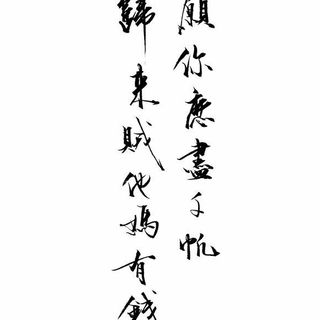 願你歷盡千帆
歸來賊他媽有錢